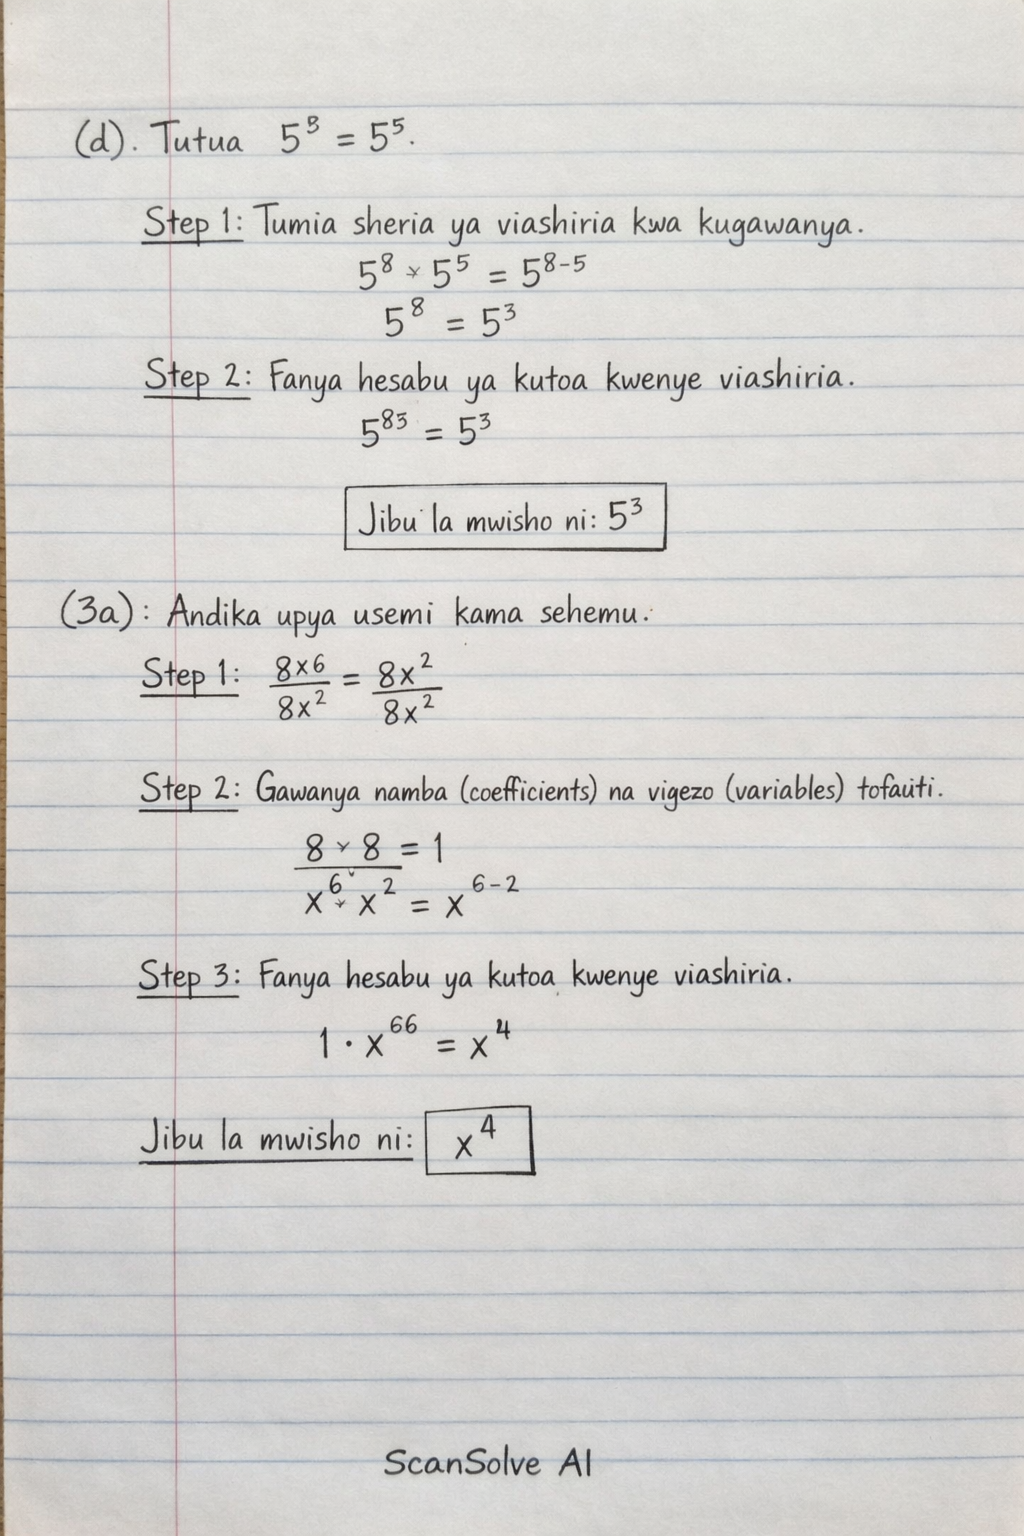 (d). Tutua 5³ = 5⁵.
Step 1: Tumia sheria ya viashiria kwa kugawanya.
5⁸ × 5⁵ = 5⁸⁻⁵
5⁸ = 5³
Step 2: Fanya hesabu ya kutoa kwenye viashiria.
5⁸³ = 5³
Jibu la mwisho ni: 5³
(3a): Andika upya usemi kama sehemu.
Step 1: 8x6/8x² = 8x²/8x²
Step 2: Gawanya namba (coefficients) na vigezo (variables) tofauti.
8 × 8 = 1
x⁶ × x² = x⁶⁻²
Step 3: Fanya hesabu ya kutoa kwenye viashiria.
1 · x⁶⁶ = x⁴
Jibu la mwisho ni: x⁴
ScanSolve AI